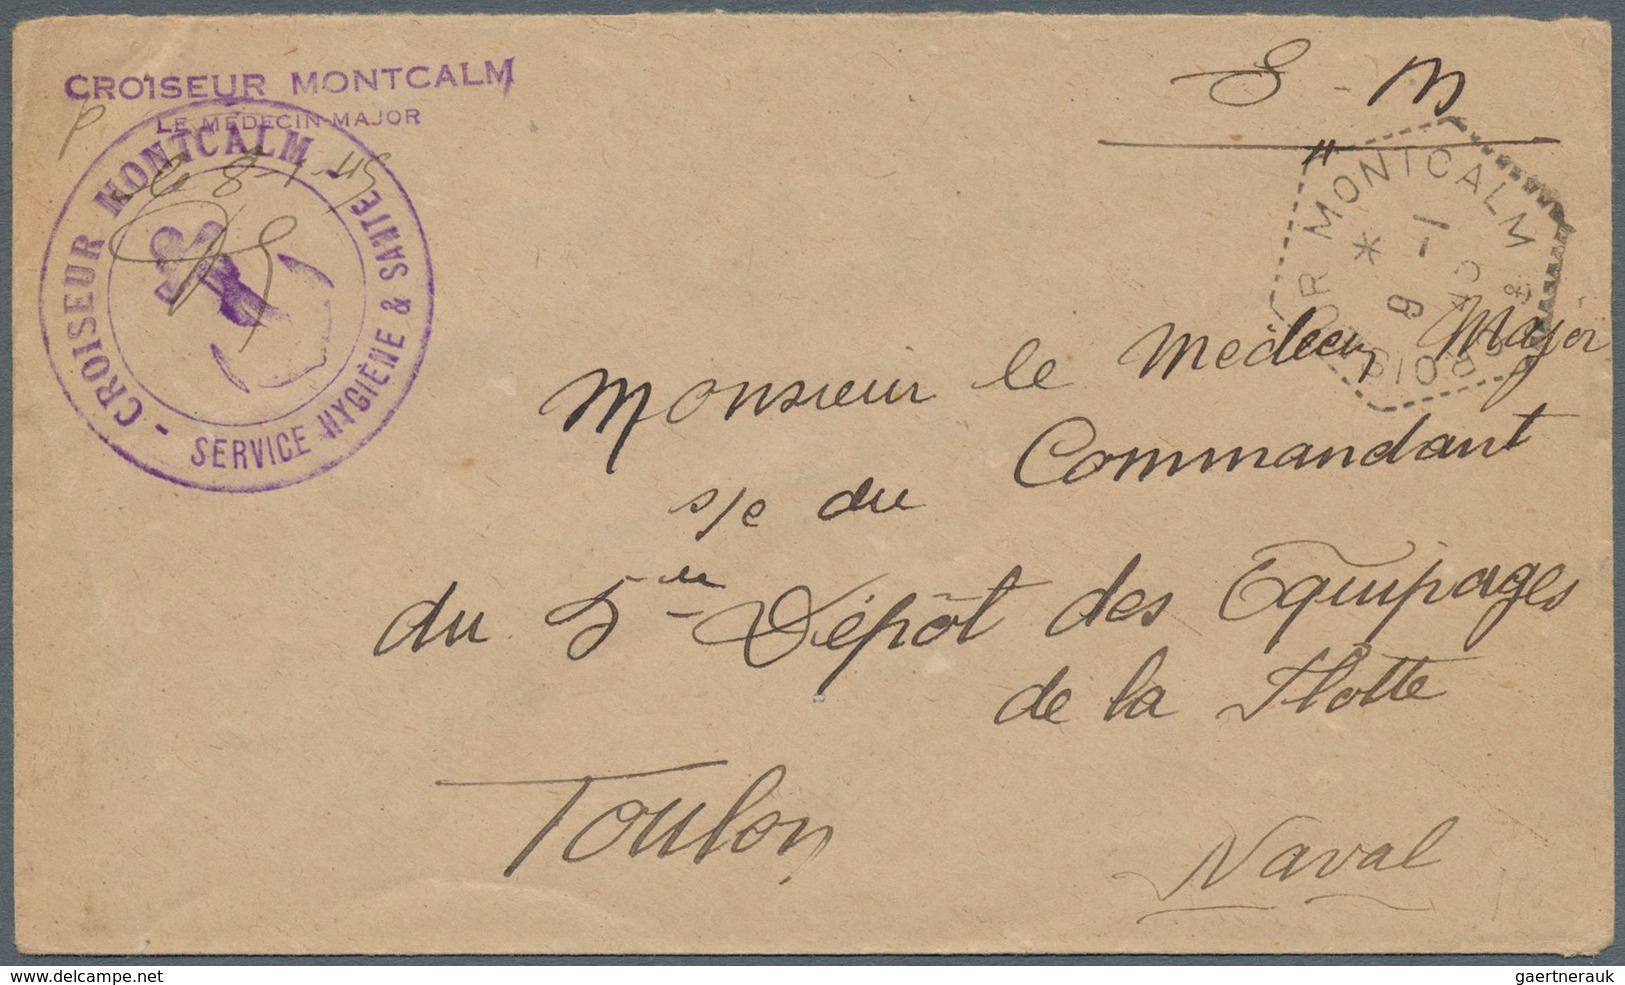 CROISEUR MONTCALM
LE MEDECIN-MAJOR
CROISEUR MONTCALM
- SERVICE HYGIÈNE & SANTE
le 8-1-45
S - M
CROISEUR MONTCALM
*
9 -1
45
Monsieur le Medecin Major
s/c du Commandant
du 5me Dépôt des Equipages
de la Flotte
Toulon
Naval
www.delcampe.net
gaertnerauk